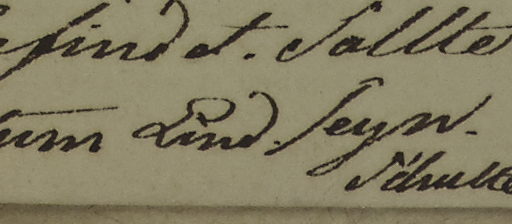 befindet. Sollte
zum Kind seyn.
Schulte